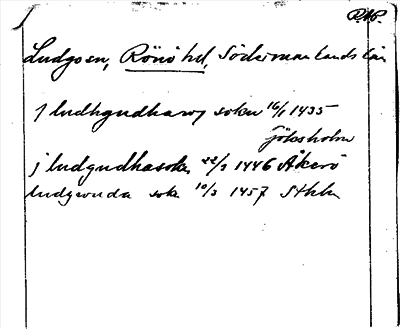 RAP.
Ludgo sn, Rönö hd, Södermanlands län
j ludhgudhaw sokn 16/1 1435
Jölesholm
j ludgudhasokn 22/3 1446 Åkerö
ludgwuda sokn 10/3 1457 Sthlm